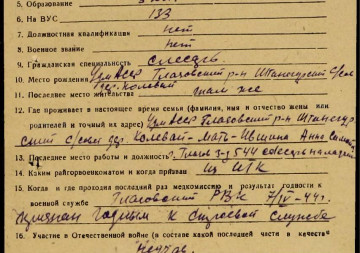 5. Образование
6. На ВУС 133
7. Должностная квалификация нет
8. Военное звание нет
9. Гражданская специальность слесарь
10. Место рождения УдмАССР Глазовский р-н Штанигурский с/сов
дер. Колевай
11. Последнее место жительства там же
12. Где проживает в настоящее время семья (фамилия, имя и отчество жены или
родителя и точный их адрес) УдмАССР Глазовский р-н Штанигур
ский с/совет дер. Колевай - Мать - Ившина Анна
13. Последнее место работы и должность Глазов з-д 544 слесарь наладч
14. Каким райгорвоенкоматом и когда призван из ИТК
15. Когда и где проходил последний раз медкомиссию и результат годности к
военной службе Глазовский РВК 7/IV-44г.
признан годным к строевой службе
16. Участие в Отечественной войне (в составе какой последней части и в качестве
не участв